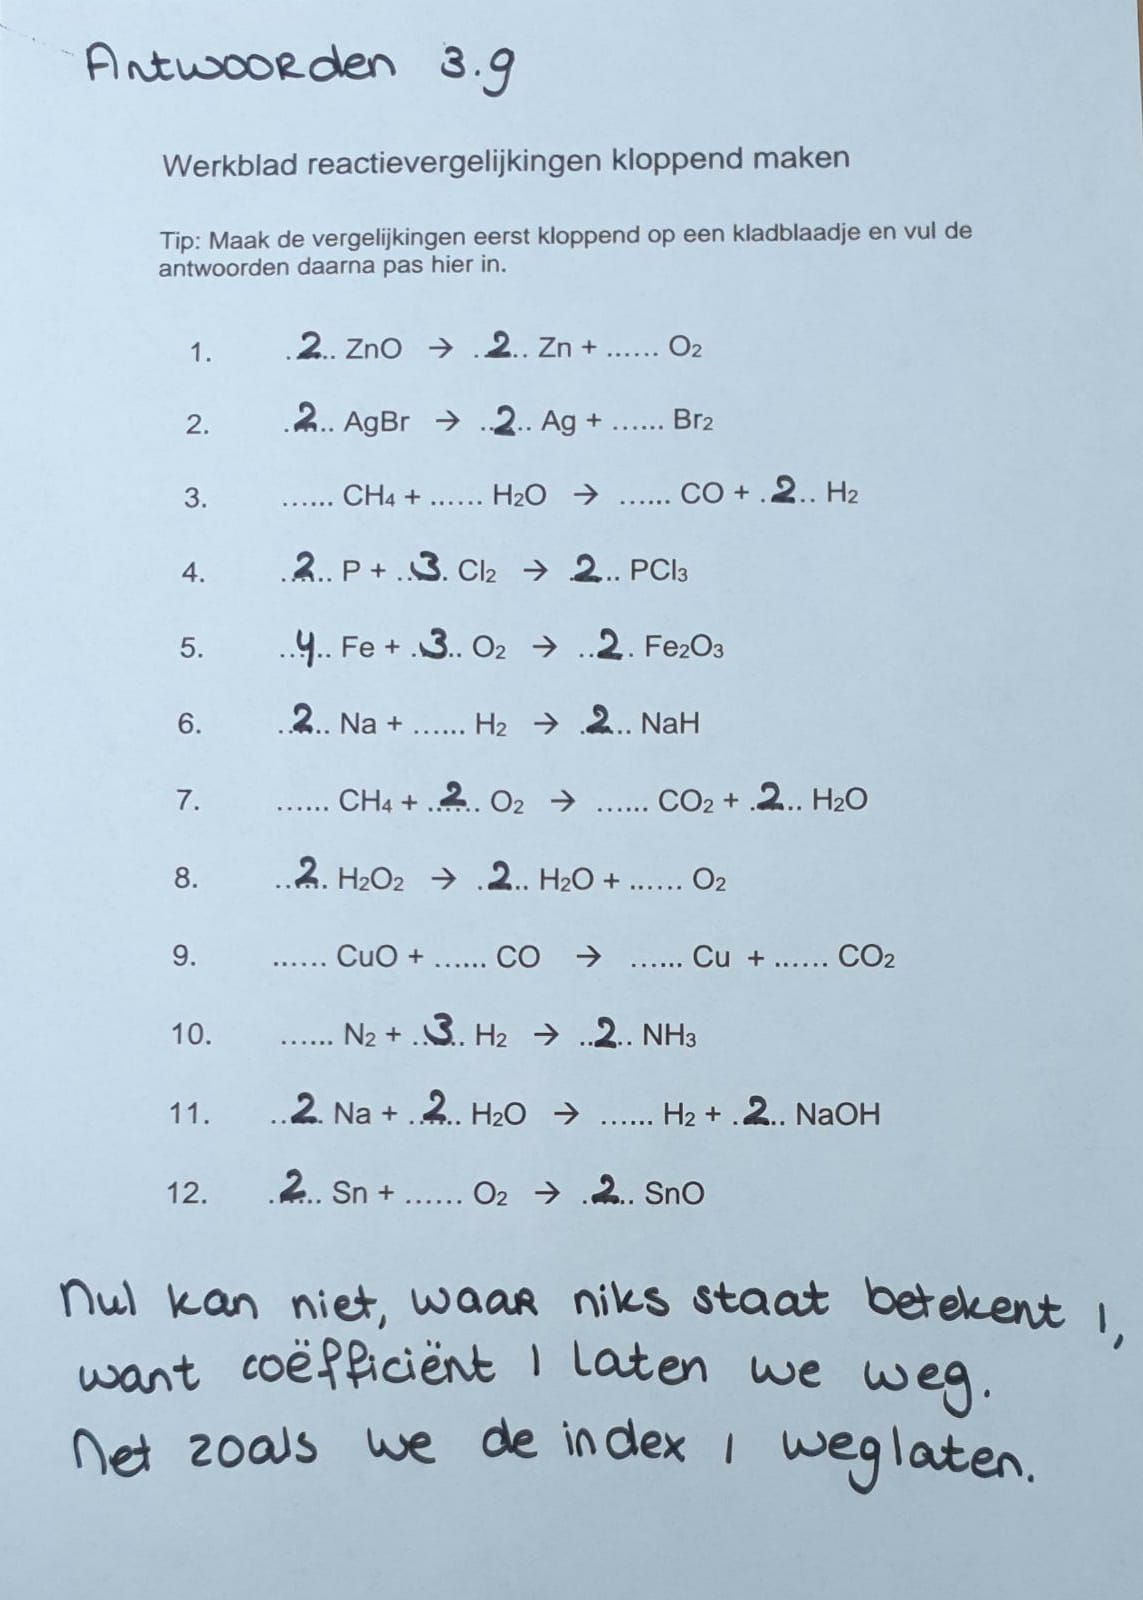 Antwoorden 3.9
Werkblad reactievergelijkingen kloppend maken
Tip: Maak de vergelijkingen eerst kloppend op een kladblaadje en vul de
antwoorden daarna pas hier in.
1. .2.. ZnO → .2.. Zn + ...... O2
2. .2.. AgBr → ..2.. Ag + ...... Br2
3. ...... CH4 + ...... H2O → ...... CO + .2.. H2
4. .2.. P + ..3. Cl2 → 2.. PCl3
5. ..4.. Fe + .3.. O2 → ..2. Fe2O3
6. ..2.. Na + ...... H2 → .2.. NaH
7. ...... CH4 + ..2.. O2 → ...... CO2 + .2.. H2O
8. ..2. H2O2 → .2.. H2O + ...... O2
9. ...... CuO + ...... CO → ...... Cu + ...... CO2
10. ...... N2 + ..3.. H2 → ..2.. NH3
11. ..2. Na + ..2.. H2O → ...... H2 + .2.. NaOH
12. .2.. Sn + ...... O2 → .2.. SnO
Nul kan niet, waar niks staat betekent 1,
want coëfficiënt 1 laten we weg.
Net zoals we de index 1 weglaten.